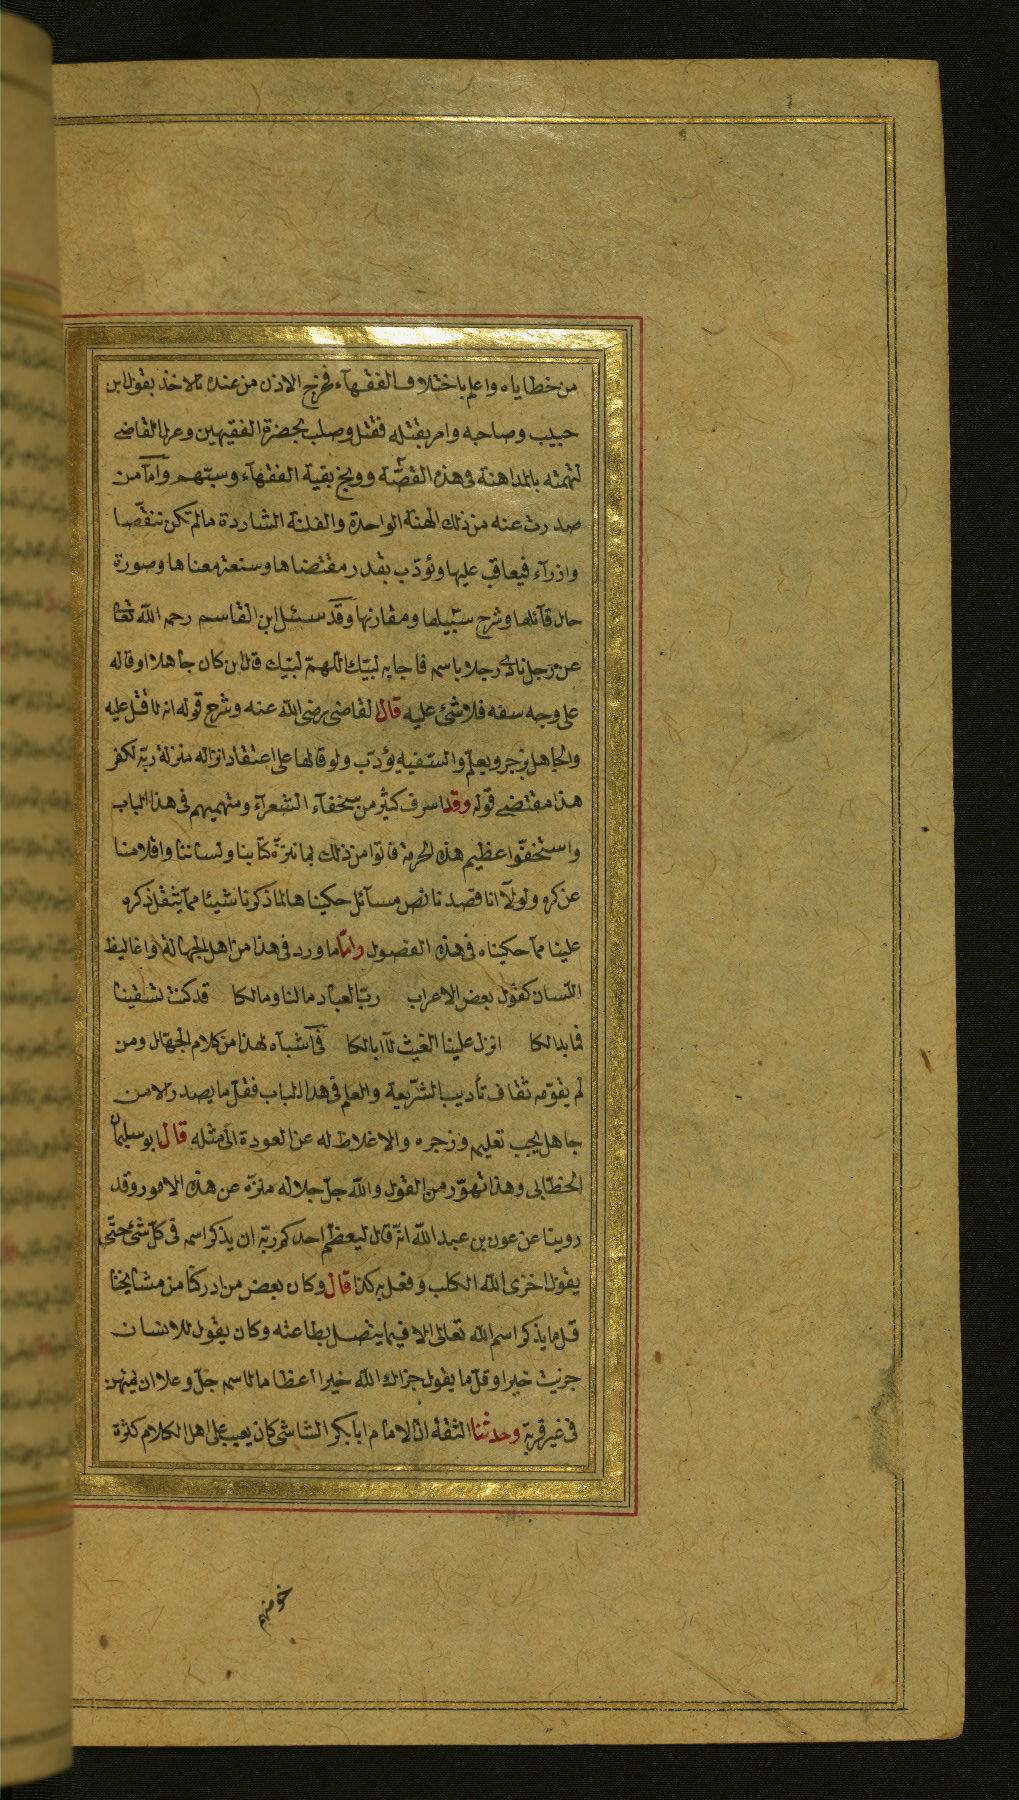 من خطاياه واعلم باختلاف الفقهآء فخرج الاذن من عنده بالاخذ بقول ابن
حبيب وصاحبه وامر بقتله فقتل وصلب بحضرة الفقيهين وعزل القاضى
لتهمته بالمداهنة فى هذه القصّة ووبخ بقية الفقهآء وسبّهم وآمآ من
صدرت عنه من ذلك الهنة الواحدة والفلتة الشاردة مالم تكن تنقّصا
وازرآء فيعاقب عليها ويؤدّب بقدر مقتضاها وسنعة معناها وصورة
حال قآئلها وشرح سببيلها ومقارنها وقد سئل ابن القاسم رحمه الله تعا
عن رجل نادى رجلا باسمه فاجابه لبيّك اللهمّ لبيّك قال ان كان جاهلا او قاله
على وجه سفه فلا شئ عليه قال القاضى رضى الله عنه وشرح قوله انه لا قتل عليه
والجاهل يزجر ويعلّم والسّفيه يؤدّب ولو قالها على اعتقاد انزاله منزلة ربّه لكفر
هذا مقتضى قوله وقد اسرف كثير من سخفآء الشعرآء ومتهميهم فى هذا الباب
واستخفّوا عظيم هذه الحرمة فاتوا من ذلك بما ننزّه كتابنا ولساننا واقلامنا
عن ذكره ولولآ انا قصدنا نص مسآئل حكيناها لما ذكرنا شيئا ممّا يثقل ذكره
علينا ممّا حكيناه فى هذه الفصول وامّا ما ورد فى هذا من اهل الجهالة واغاليظ
اللّسان كقول بعض الاعراب ربّ العباد مالنا ومالكا قد كنت تسقينا
فما بدالكا انزل علينا الغيث لآ ابالكا فى اشباه لهذا من كلام الجهّال ومن
لم يقوّمه ثقاف تأديب الشّريعة والعلم فى هذا الباب فقلّ ما يصدر الا من
جاهل يجب تعليمه وزجره والاغلاظ له عن العودة الى مثله قال ابو سليمان
الخطّابى وهذا تهوّر من القول والله جلّ جلاله منزّه عن هذه الامور وقد
روينا عن عون بن عبد الله انّه قال ليعظم احدكم ربّه ان يذكر اسمه فى كل شئ حتّى
يقول اخزى الله الكلب وفعل به كذا قال وكان بعض من ادركنا من مشايخنا
قل ما يذكر اسم الله تعالى الا فيما يتصل بطاعته وكان يقول للانسان
جزيت خيرا وقلّ ما يقول جزاك الله خيرا اعظاما لاسمه جلّ وعلا ان يمتهن
فى غير قربة وحدثنا الثقة ان الامام ابا بكر الشاشى كان يعيب على اهل الكلام كثرة
خوضهم